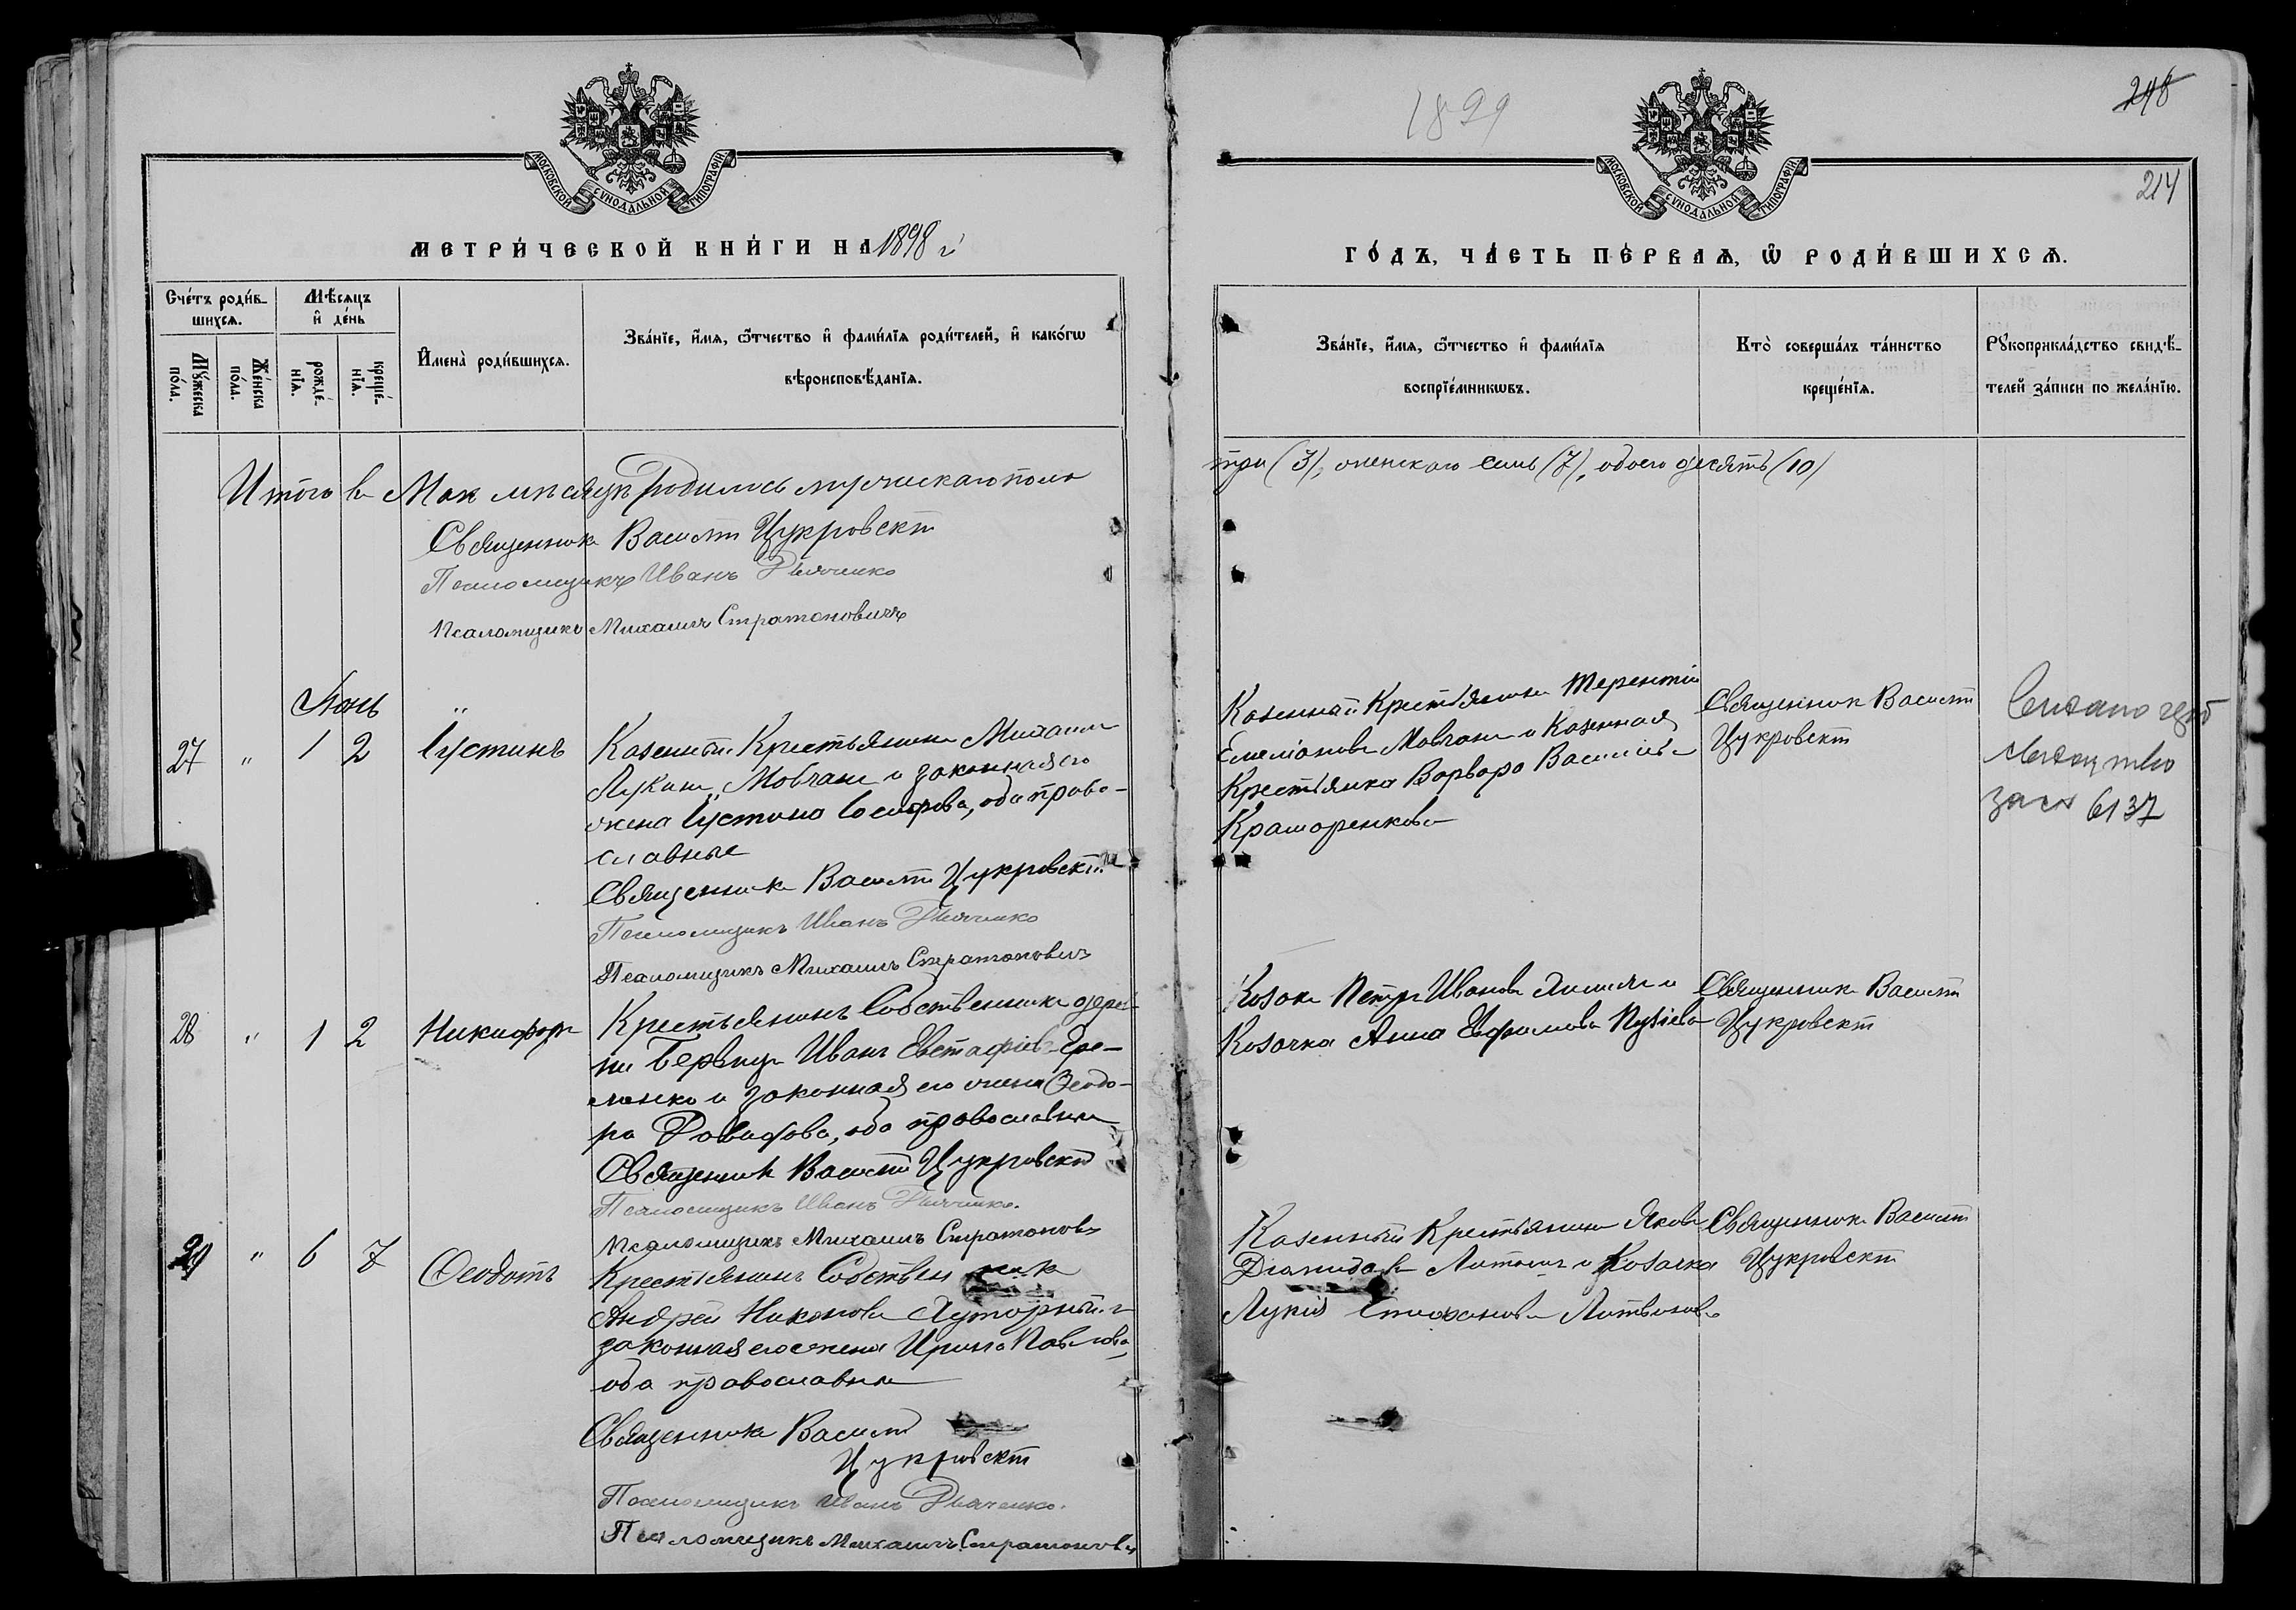 МОСКОВСКОЙ СѴНОДАЛЬНОЙ ТИПОГРАФІИ
МЕТРИ́ЧЕСКОЙ КНИ́ГИ НА 1898 г
Сче́тъ роди́в-
шихсѧ.
Мѣ́сѧцъ
и҆ де́нь
Мꙋ́жеска
по́ла.
Же́нска
по́ла.
рожде́-
нїѧ.
креще́-
нїѧ.
И҆мена̀ роди́вшихсѧ.
Зва́нїе, и҆́мѧ, ѻ҆́тчество и҆ фами́лїѧ роди́телей, и҆ како́гѡ
вѣроисповѣ́данїѧ.
Итого въ Маѣ мѣсяцѣ Родилось мужескаго пола
Священникъ Василій Цукровскій
Псаломщикъ Иванъ Дьяченко
Псаломщикъ Михаилъ Стратоновичъ
Іюнь
27 " 1 2 Іустинъ
Казенный Крестьянинъ Михаилъ
Лукинъ Мовчанъ и законная его
жена Іустина Іосифова, оба право-
славные
Священникъ Василій Цукровскій
Псаломщикъ Иванъ Дьяченко
Псаломщикъ Михаилъ Стратоновичъ
28 " 1 2 Никифоръ
Крестьянинъ Собственникъ дерев-
ни Иванъ Евстафіевъ Ере-
менко и законная его жена Ѳеодо-
ра Давидова, оба православные
Священникъ Василій Цукровскій
Псаломщикъ Иванъ Дьяченко.
Псаломщикъ Михаилъ Стратоновъ
29 " 6 7 Ѳеодотъ
Крестьянинъ Собственникъ
Андрей Никоновъ и
законная его жена Ирина Павлова,
оба православные
Священникъ Василій
Цукровскій
Псаломщикъ Иванъ Дьяченко.
Псаломщикъ Михаилъ Стратоновъ
1899
218
214
МОСКОВСКОЙ СѴНОДАЛЬНОЙ ТИПОГРАФІИ
ГО́ДЪ, ЧА́СТЬ ПЕ́РВАѦ, Ѡ҆ РОДИ́ВШИХСѦ.
Зва́нїе, и҆́мѧ, ѻ҆́тчество и҆ фами́лїѧ
воспрїе́мникѡвъ.
Кто̀ соверша́лъ та́инство
креще́нїѧ.
Рꙋкоприкла́дство свидѣ́-
телей за́писи по жела́нїю.
три (3), женскаго семь (7), обоего десять (10)
Казенный Крестьянинъ Терентій
Емеліановъ Мовчанъ и Казенная
Крестьянка Варвара Васильева
Крамаренкова
Священникъ Василій
Цукровскій
6137
Козакъ Петръ Ивановъ и
Козачка Анна Ефимова
Священникъ Василій
Цукровскій
Казенный Крестьянинъ Яковъ
Діомидовъ и Козачка
Лукія Стефанова Литвинова
Священникъ Василій
Цукровскій